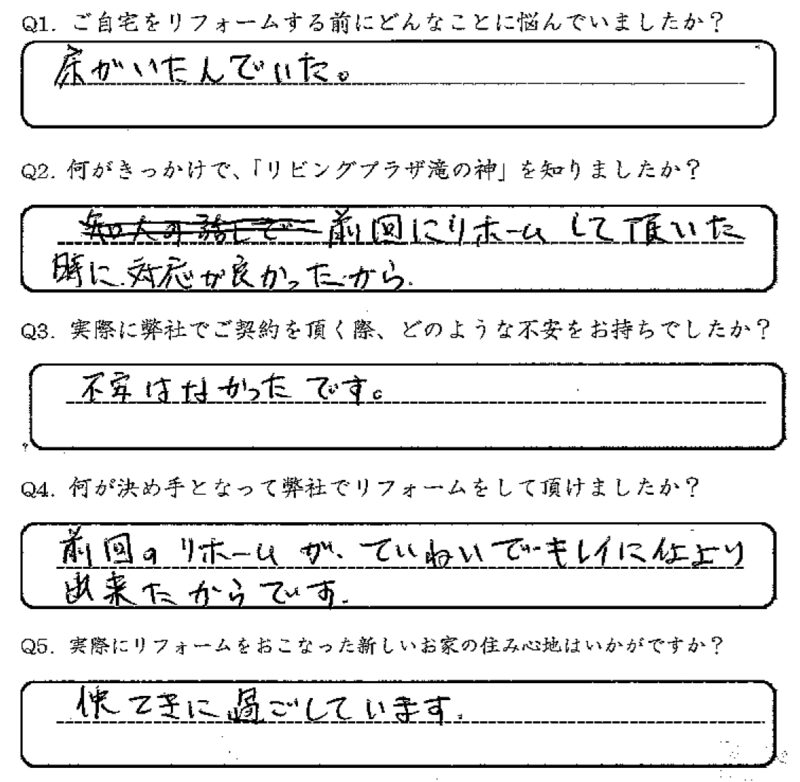 Q1. ご自宅をリフォームする前にどんなことに悩んでいましたか？
床がいたんでいた。
Q2. 何がきっかけで、「リビングプラザ滝の神」を知りましたか？
前回にリホームして頂いた
時に対応が良かったから.
Q3. 実際に弊社でご契約を頂く際、どのような不安をお持ちでしたか？
不安はなかったです。
Q4. 何が決め手となって弊社でリフォームをして頂けましたか？
前回のリホームが、ていねいでキレイに仕上り
出来たからです.
Q5. 実際にリフォームをおこなった新しいお家の住み心地はいかがですか？
快てきに過ごしています.